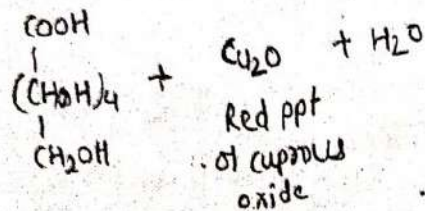 COOH
(CHOH)4 + Cu2O + H2O
CH2OH
Red ppt
of cuprous
oxide